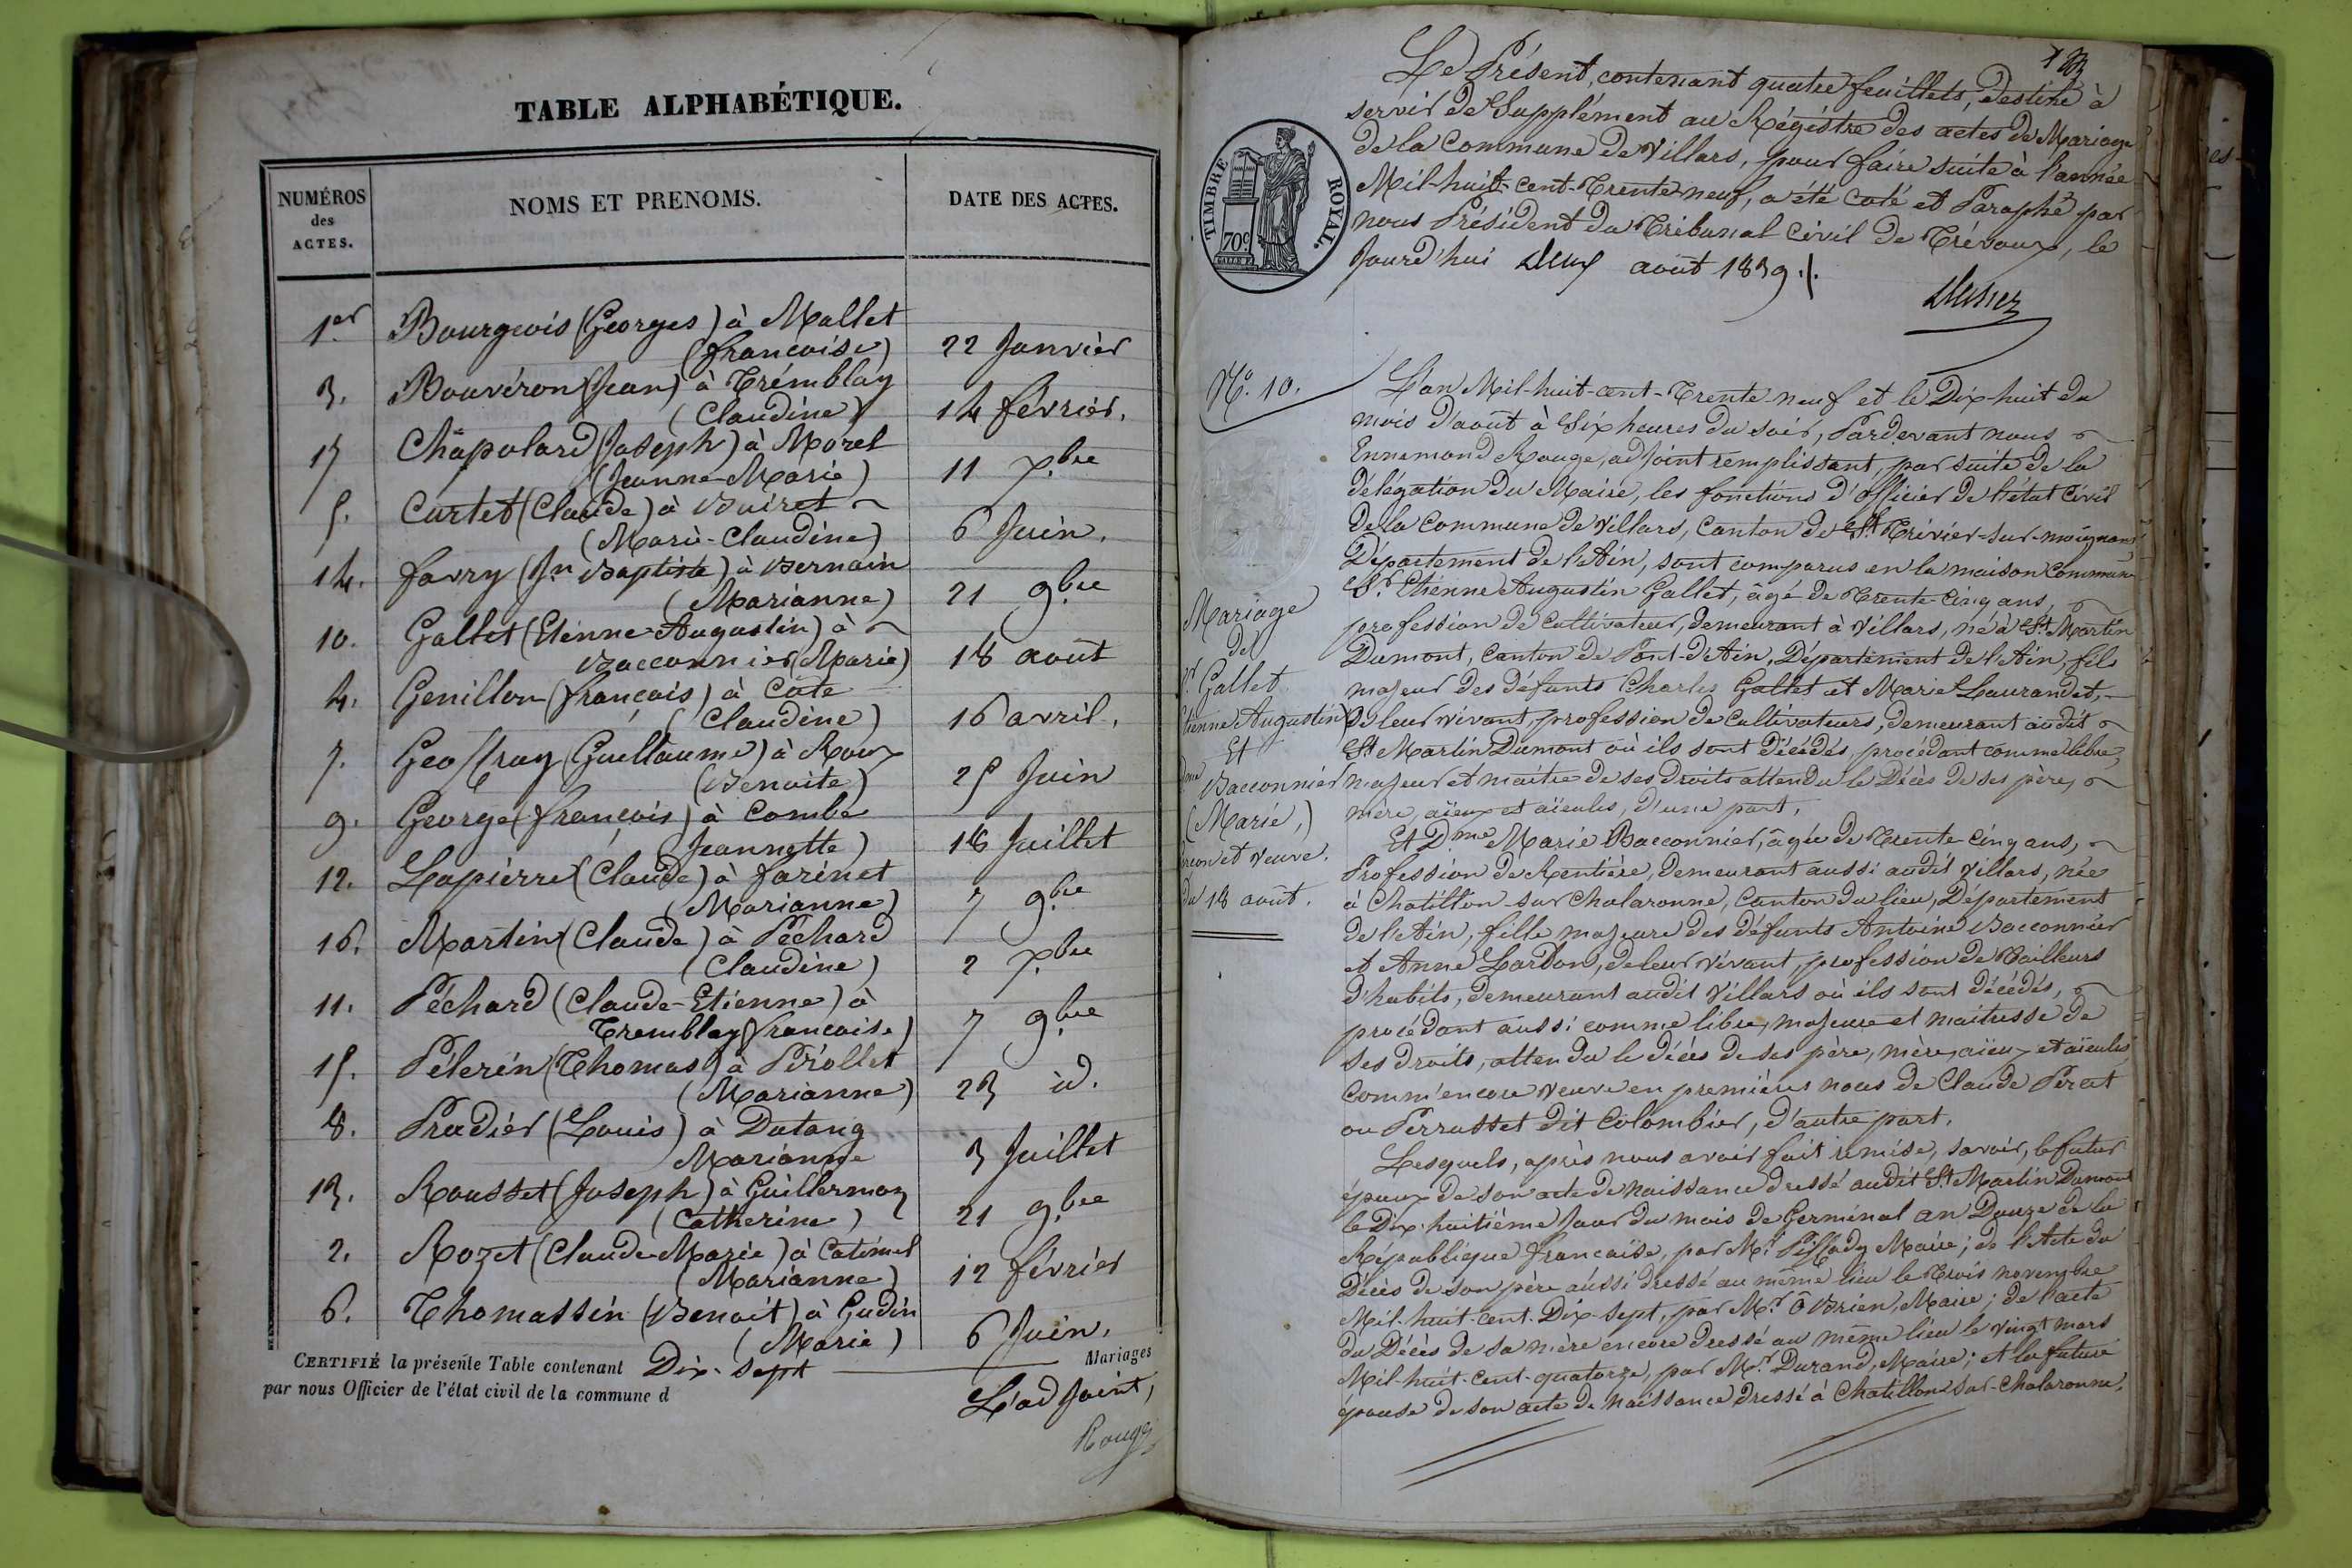 TABLE ALPHABÉTIQUE.
NUMÉROS
des
ACTES.
NOMS ET PRENOMS.
DATE DES ACTES.
1er Bourgeois (Georges) à Mallet
(françoise) 22 Janvier
3. Bouvéron (Jean) à Trémblay
(Claudine) 14 février.
17 Chapolard (Joseph) à Morel
(Jeanne-Marie) 11 Xbre
5. Curtet (Claude) à Buiret
(Marie-Claudine) 6 Juin.
14. favry (Jn Baptiste) à Bernain
(Marianne) 21 9bre
10. Gallet (Etienne Augustin) à
Bacconnier (Marie) 18 août
4. Genillon (françois) à Côte
(Claudine) 16 avril.
7. Geoffray (Guillaume) à Roux
(Benoite) 25 Juin
9. George (françois) à Combe
(Jeannette) 18 Juillet
12. Lapierre (Claude) à farinet
(Marianne) 7 9bre
16. Martin (Claude) à Péchard
(Claudine) 2 Xbre
11. Péchard (Claude-Etienne) à
Tremblay (françoise) 7 9bre
15. Pélerin (Thomas) à Pérollet
(Marianne) 23 id.
8. Pradier (Louis) à Dutang
Marianne 3 Juillet
13. Rousset (Joseph) à Guillermoz
(Catherine) 21 9bre
2. Rozet (Claude-Marie) à Catimel
(Marianne) 12 février
6. Thomassin (Benoit) à Gudin
(Marie) 6 Juin.
CERTIFIÉ la présente Table contenant Dix-sept Mariages
par nous Officier de l'état civil de la commune d
L'adjoint,
Rouge
Le Présent, contenant quatre feuillets, destiné à
servir de Supplément au Régistre des actes de Mariage
de la Commune de Villars, pour faire suite à l'année
Mil-huit-cent-Trente neuf, a été coté et Paraphé par
nous Président du Tribunal Civil de Trévoux, le
Jourd'hui deux août 1839 ./.
TIMBRE ROYAL.
70c
No. 10.
L'an Mil-huit-cent-Trente-neuf et le Dix-huit du
mois d'août à Six heures du soir, Pardevant nous
Ennemond Rouge, adjoint remplissant, par suite de la
délégation du Maire, les fonctions d'Officier de l'état Civil
de la Commune de Villars, Canton de St. Trivier-sur-moignans,
Département de l'Ain, sont comparus en la maison Commune
Sr. Etienne Augustin Gallet, âgé de Trente-Cinq ans,
profession de Cultivateur, demeurant à Villars, né à St. Martin
Dumont, Canton de Pont-d'Ain, Département de l'Ain, fils
majeur des défunts Charles Gallet et Marie Laurandet,
de leur vivant, profession de Cultivateurs, demeurant audit
St. Martin Dumont où ils sont Décédés, procédant comme libre,
majeur et maître de ses droits attendu le Décès de ses père,
mère, aïeux et aïeules, d'une part.
Et Dme Marie Bacconnier, âgée de Trente Cinq ans,
Profession de Rentière, demeurant aussi audit Villars, née
à Chatillon-sur-Chalaronne, Canton du lieu, Département
de l'Ain, fille majeure des défunts Antoine Bacconnier
et Anne Lardon, de leur vivant, profession de Tailleurs
d'habits, demeurant audit Villars où ils sont décédés,
procédant aussi comme libre, majeure et maitresse de
ses droits, attendu le décès de ses père, mère, aïeux et aïeules
Comm'encore veuve en premières noces de Claude Perret
ou Perrusset dit Colombier, d'autre part.
Lesquels, après nous avoir fait remise, savoir, le futur
époux de son acte de naissance dressé audit St. Martin Dumont
le Dix-huitième Jour du mois de Germinal an Douze de la
République française, par Mr. Maire; de l'Acte du
Décès de son père aussi dressé au même lieu le Trois novembre
Mil-huit-cent-Dix-sept, par Mr. O Brien, Maire; de l'acte
du Décès de sa mère encore dressé au même lieu le vingt mars
Mil-huit-cent-quatorze, par Mr. Durand, Maire; et la future
épouse de son acte de naissance dressé à Chatillon sur-Chalaronne,
Mariage
de
Sr. Gallet
Etienne Augustin
Et
Dme Bacconnier
(Marie,)
et veuve.
du 18 août.